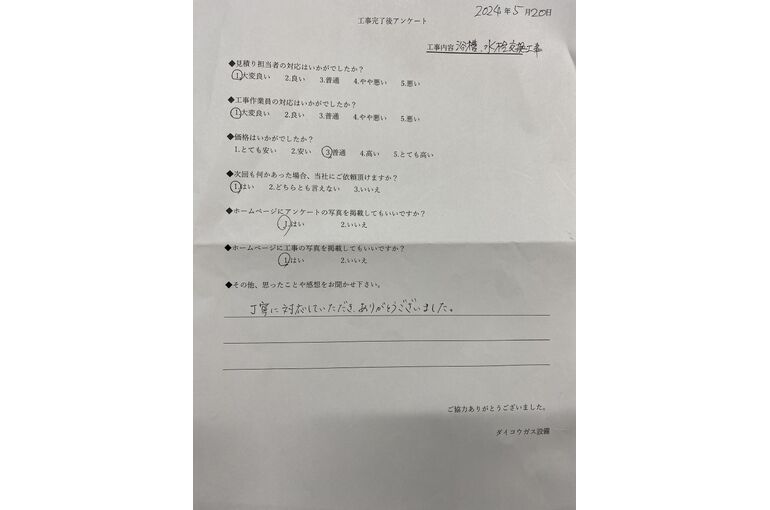 2024年5月20日
工事完了後アンケート
工事内容 浴槽、水栓交換工事
◆見積り担当者の対応はいかがでしたか?
1.大変良い 2.良い 3.普通 4.やや悪い 5.悪い
◆工事作業員の対応はいかがでしたか?
1.大変良い 2.良い 3.普通 4.やや悪い 5.悪い
◆価格はいかがでしたか?
1.とても安い 2.安い 3.普通 4.高い 5.とても高い
◆次回も何かあった場合、当社にご依頼頂けますか?
1.はい 2.どちらとも言えない 3.いいえ
◆ホームページにアンケートの写真を掲載してもいいですか?
1.はい 2.いいえ
◆ホームページに工事の写真を掲載してもいいですか?
1.はい 2.いいえ
◆その他、思ったことや感想をお聞かせ下さい。
丁寧に対応していただき、ありがとうございました。
ご協力ありがとうございました。
ダイコウガス設備